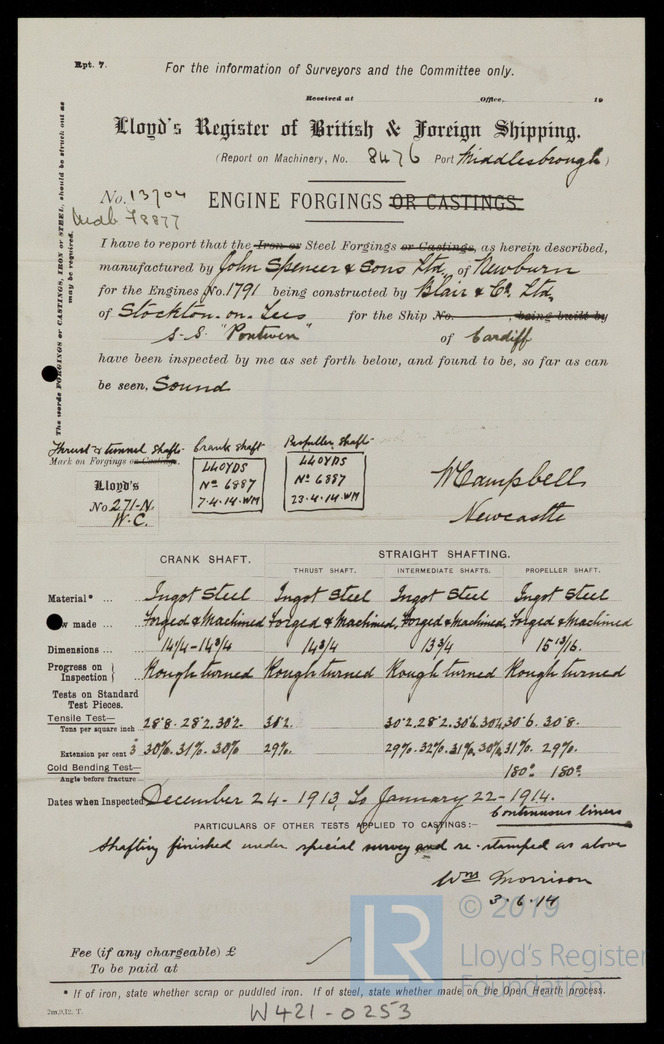 Rpt. 7.
For the information of Surveyors and the Committee only.
Received at Office, 19
Lloyd's Register of British & Foreign Shipping.
(Report on Machinery, No. 8476 Port Middlesbrough)
No. 13704
Mdb 78877
ENGINE FORGINGS OR CASTINGS.
The words FORGINGS or CASTINGS, IRON or STEEL, should be struck out as
may be required.
I have to report that the Iron or Steel Forgings or Castings, as herein described,
manufactured by John Spencer & Sons Ltd, of Newburn
for the Engines No. 1791 being constructed by Blair & Co. Ltd,
of Stockton-on-Tees for the Ship No. being built by
S.S. "Pontwen" of Cardiff
have been inspected by me as set forth below, and found to be, so far as can
be seen, Sound
Thrust & tunnel shafts Crank shaft Propeller shaft
Mark on Forgings or Castings.
Lloyd's
No 271-N.
W.C.
LLOYDS
No 6887
7.4.14.WM
LLOYDS
No 6887
23.4.14.WM
W Campbell
Newcastle
CRANK SHAFT. STRAIGHT SHAFTING.
THRUST SHAFT. INTERMEDIATE SHAFTS. PROPELLER SHAFT.
Material* ... Ingot Steel Ingot Steel Ingot Steel Ingot Steel
w made ... Forged & Machined Forged & Machined, Forged & Machined, Forged & Machined
Dimensions ... 14 1/4 - 14 3/4 14 3/4 13 3/4 15 13/16.
Progress on Inspection } Rough turned Rough turned Rough turned Rough turned
Tests on Standard
Test Pieces.
Tensile Test—
Tons per square inch 28.8. 28.2. 30.2. 30.2. 30.2. 28.2. 30.6. 30.4, 30.6. 30.8.
Extension per cent 3 30%. 31%. 30% 29%. 29%. 32%. 31%. 30%, 31%. 29%.
Cold Bending Test—
Angle before fracture 180° 180°.
Dates when Inspected December 24 - 1913, to January 22 - 1914.
Continuous liners
PARTICULARS OF OTHER TESTS APPLIED TO CASTINGS:—
Shafting finished under special survey and re-stamped as above
Wm Morrison
3.6.14
Fee (if any chargeable) £
To be paid at
* If of iron, state whether scrap or puddled iron. If of steel, state whether made on the Open Hearth process.
2m,9,12. T.
W421-0253
LR
© 2019
Lloyd's Register
Foundation